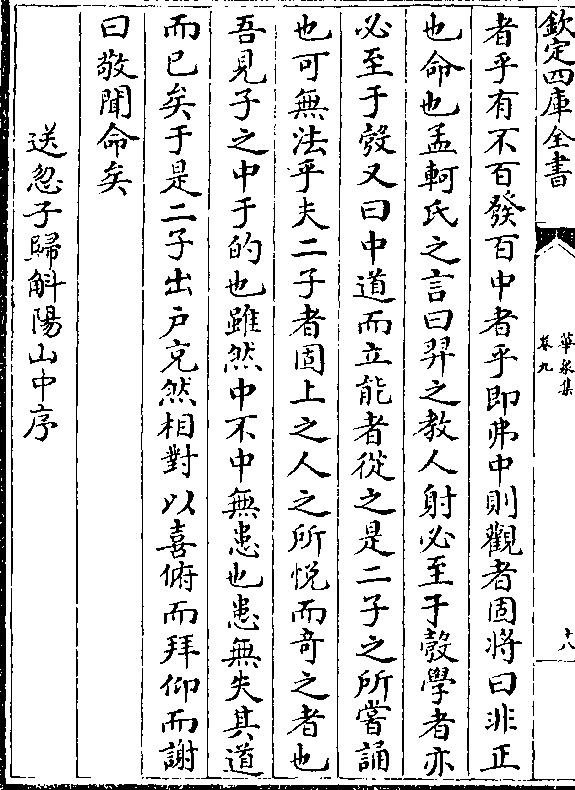 欽定四庫全書
華泉集
卷九
十八
者乎有不百發百中者乎即弗中則觀者固將曰非正
也命也孟軻氏之言曰羿之教人射必至于彀學者亦
必至于彀又曰中道而立能者從之是二子之所嘗誦
也可無法乎夫二子者固上之人之所悅而奇之者也
吾見子之中于的也雖然中不中無患也患無失其道
而已矣于是二子出戶兗然相對以喜俯而拜仰而謝
曰敬聞命矣
送忽子歸斛陽山中序